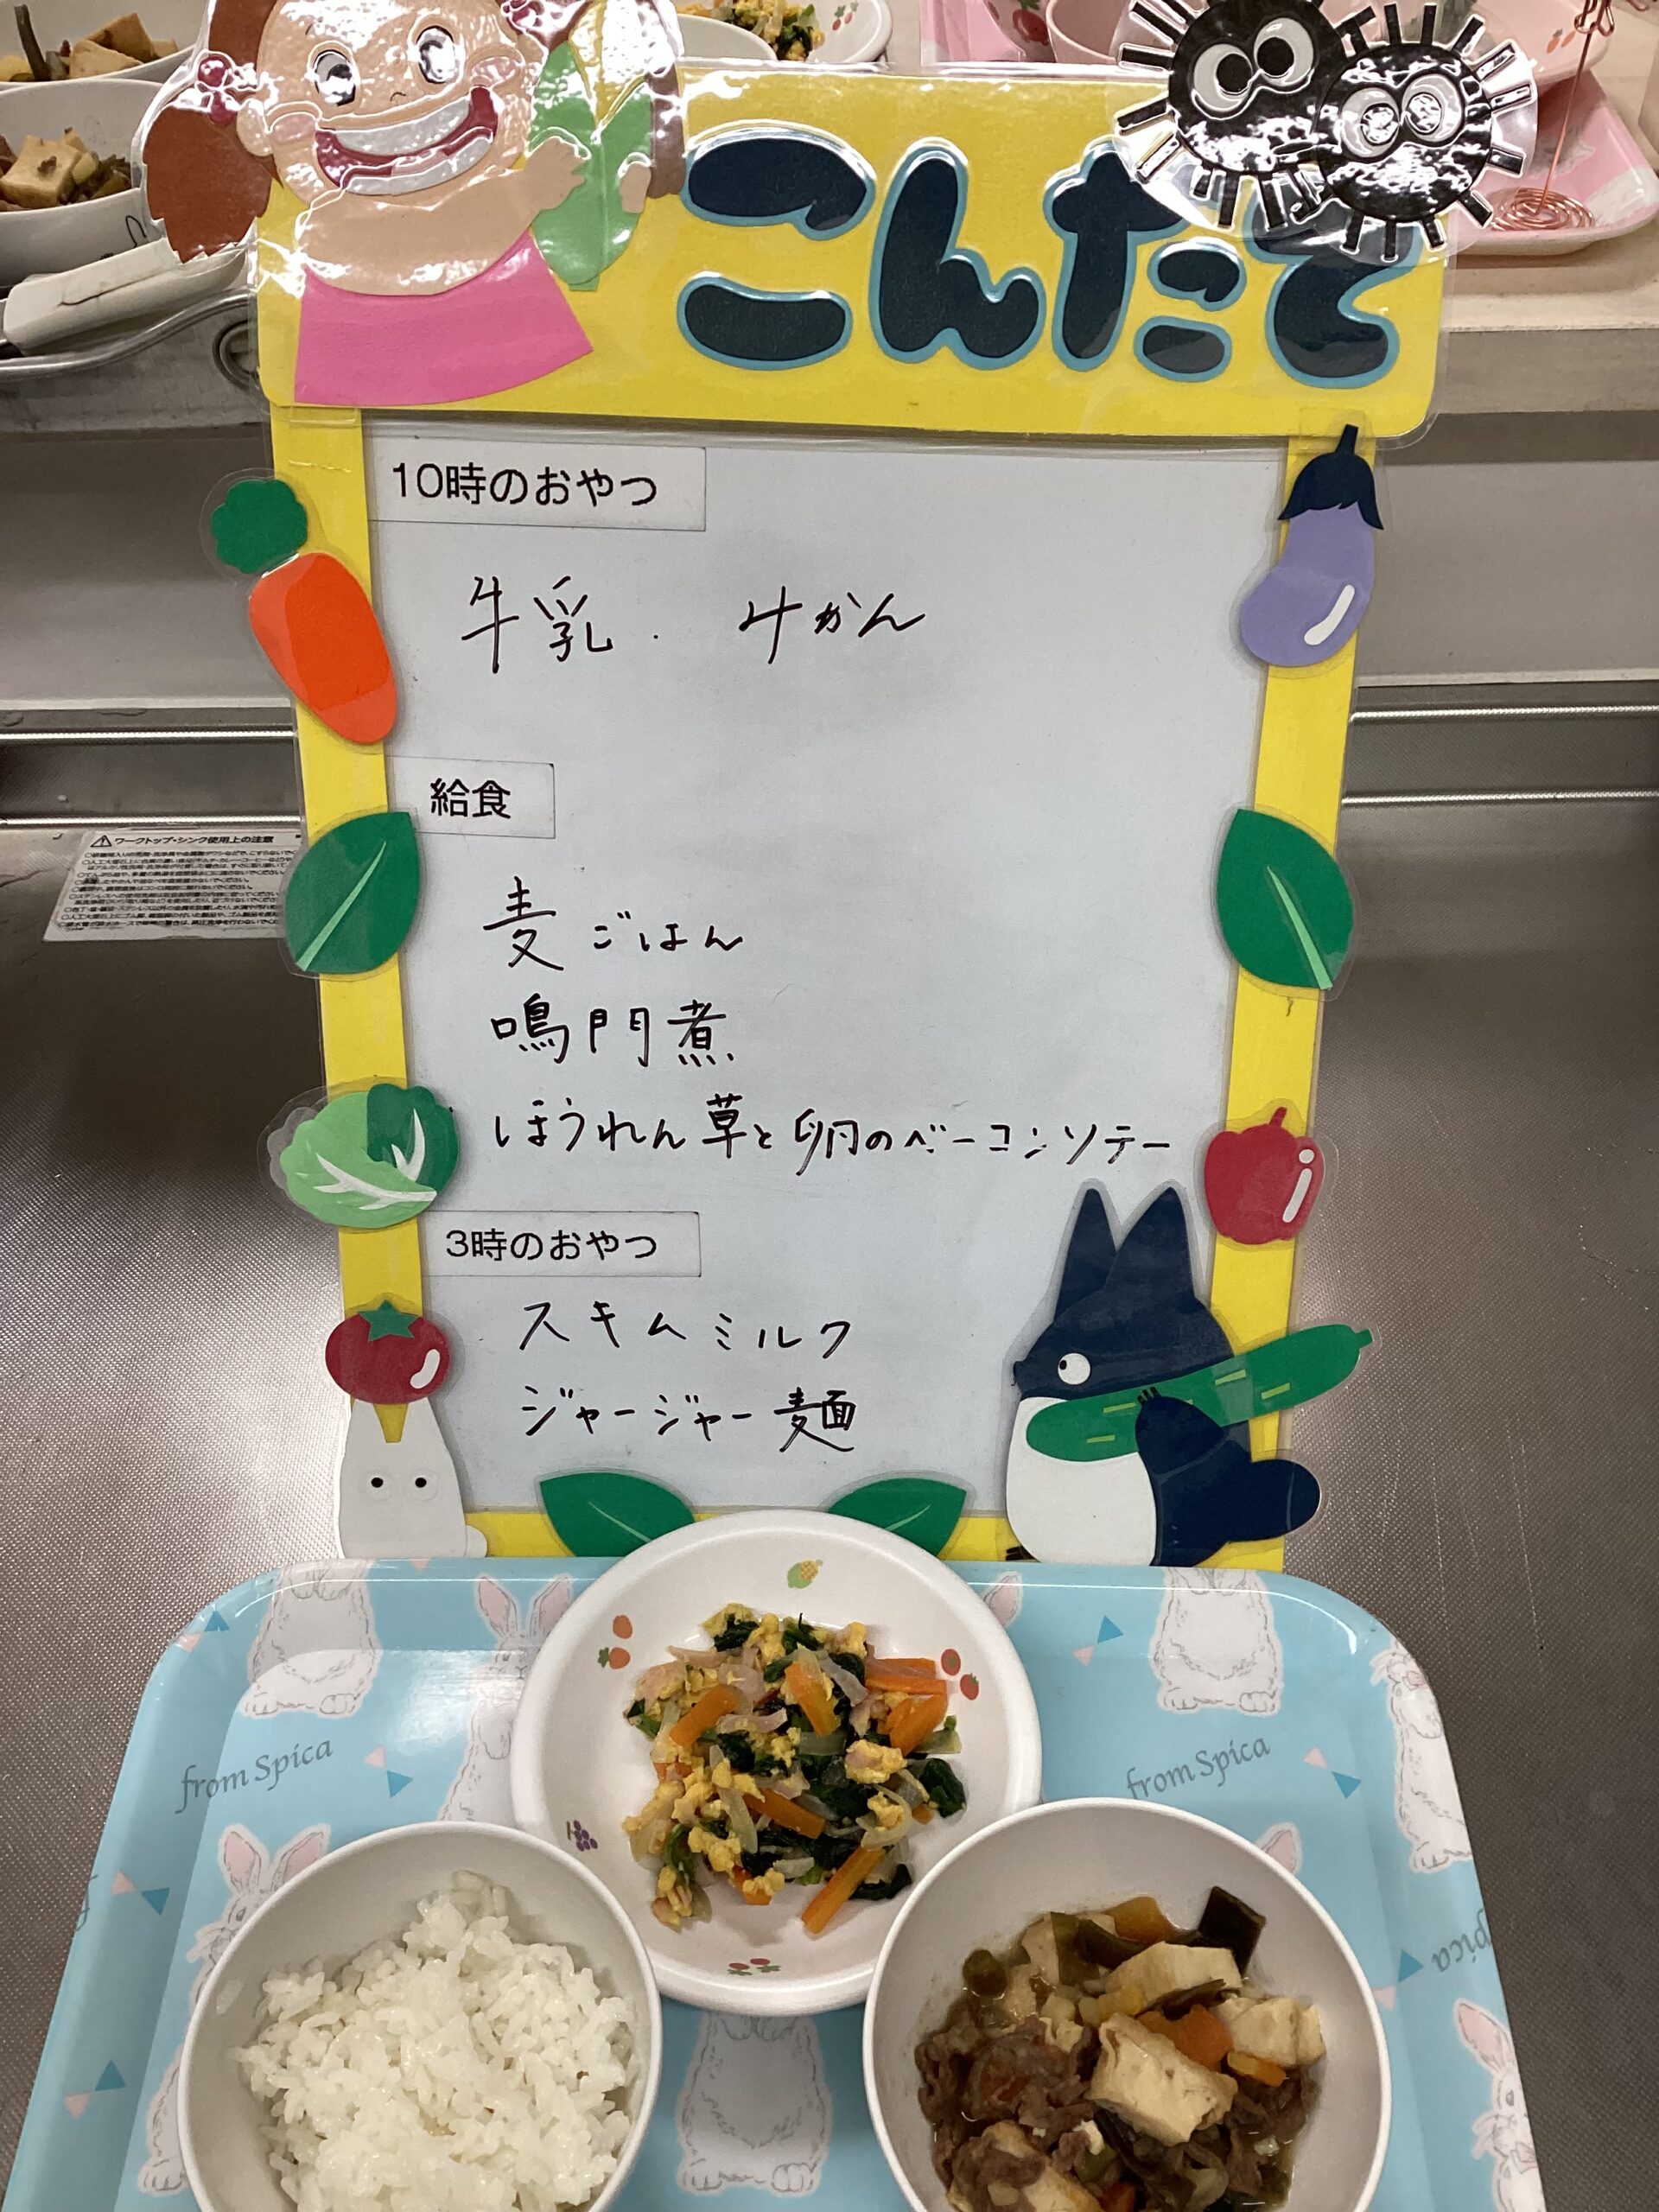 こんだて
10時のおやつ
牛乳. みかん
給食
麦ごはん
鳴門煮
ほうれん草と卵のベーコンソテー
3時のおやつ
スキムミルク
ジャージャー麺
ワークトップ・シンク使用上の注意
from Spica
from Spica